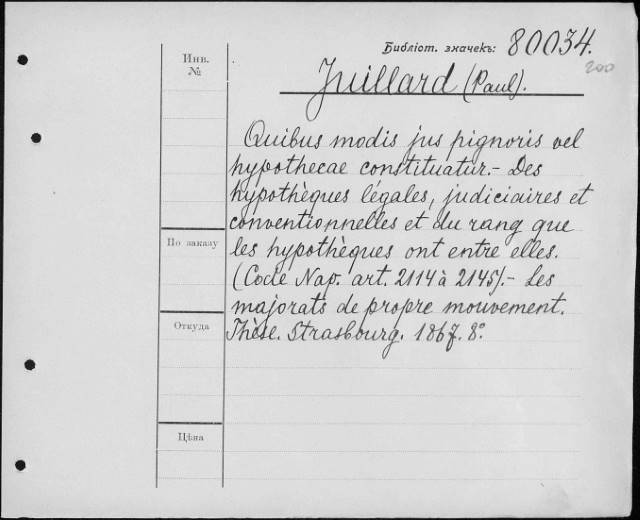 Библіот. значекъ: 80034.
200
Инв.
№
Juillard (Paul).
Quibus modis jus pignoris vel
hypothecae constituatur.- Des
hypothèques légales, judiciaires et
conventionnelles et du rang que
По заказу
les hypothèques ont entre elles.
(Code Nap. art. 2114 à 2145).- Les
majorats de propre mouvement.
Откуда
Thèse. Strasbourg. 1867. 8°.
Цѣна